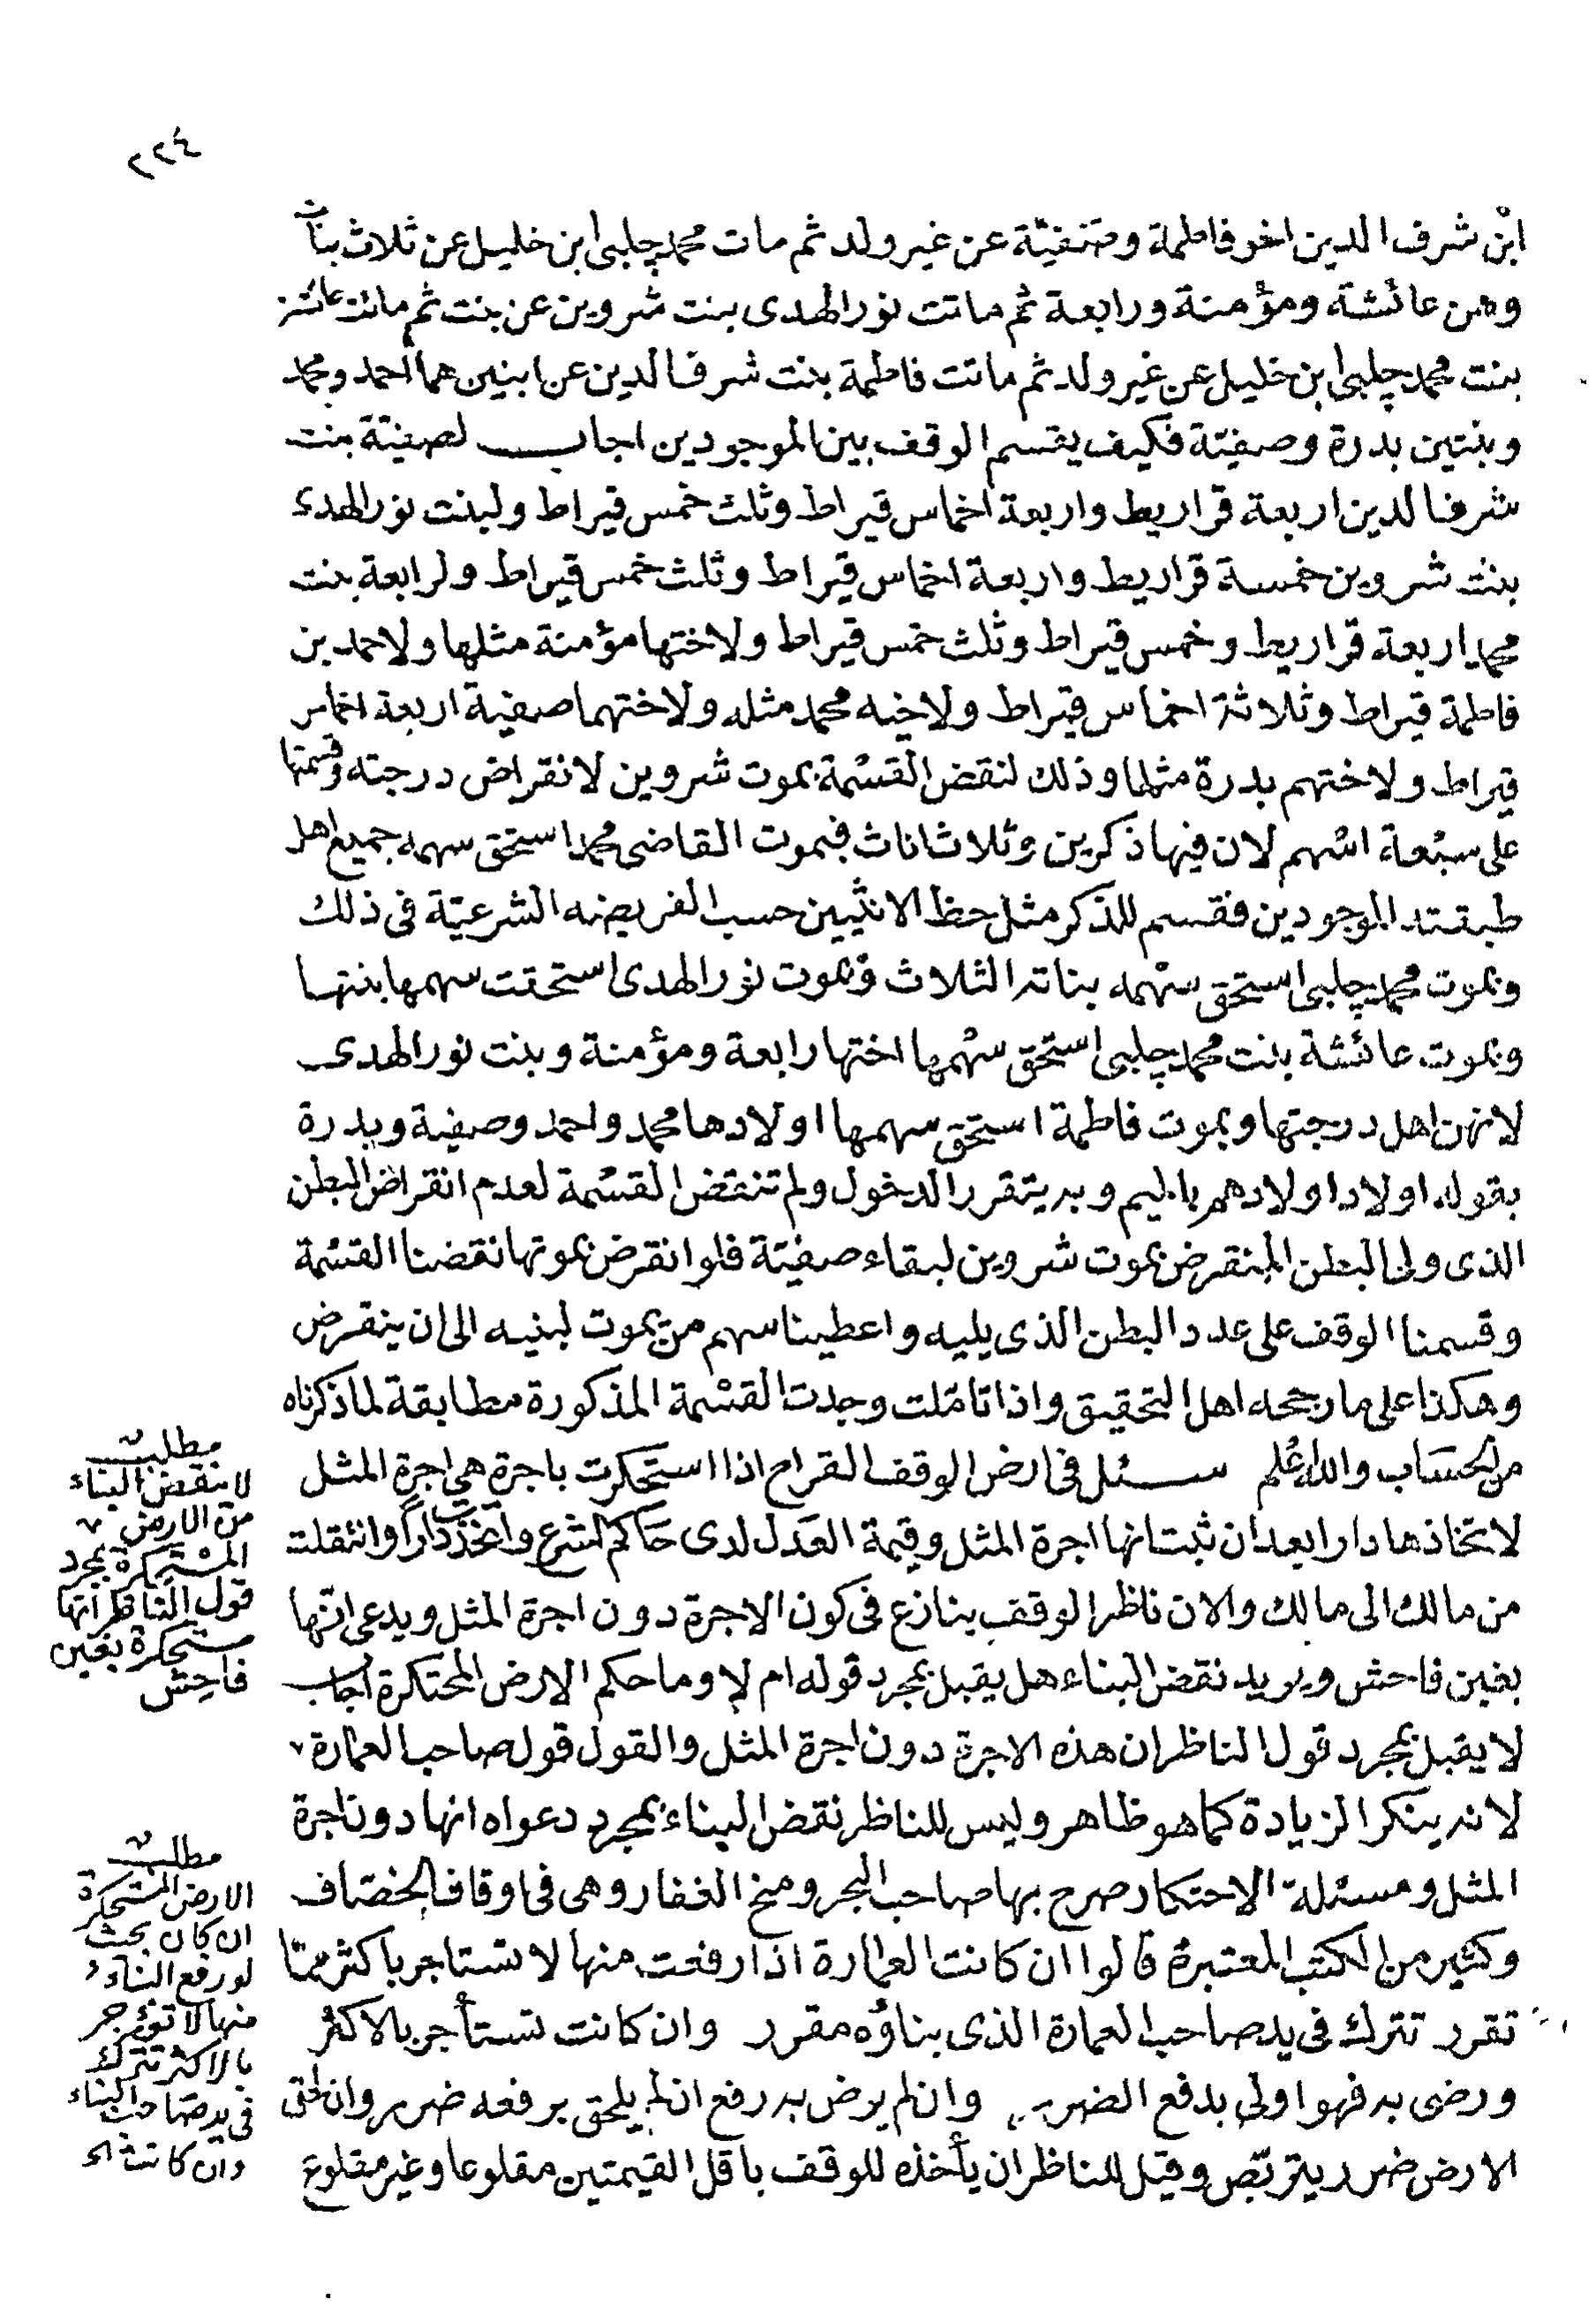 ٢٢٤
ابن شرف الدين اخو فاطمة وصفيّة عن غير ولد ثم مات محمد چلبى ابن خليل عن ثلاث بنات
وهن عائشة ومؤمنة ورابعة ثم ماتت نور الهدى بنت شروين عن بنت ثم ماتت عائشة
بنت محمد چلبى ابن خليل عن غير ولد ثم ماتت فاطمة بنت شرف الدين عن ابنين هما احمد ومحمد
وبنتين بدرة وصفيّة فكيف يقسم الوقف بين الموجودين اجاب لصفيّة بنت
شرف الدين اربعة قراريط واربعة اخماس قيراط وثلث خمس قيراط ولبنت نور الهدى
بنت شروين خمسة قراريط واربعة اخماس قيراط وثلث خمس قيراط ولرابعة بنت
محمد اربعة قراريط وخمس قيراط وثلث خمس قيراط ولاختها مؤمنة مثلها ولاحمد بن
فاطمة قيراط وثلاثة اخماس قيراط ولاخيه محمد مثله ولاختهما صفية اربعة اخماس
قيراط ولاختهم بدرة مثلها وذلك لنقض القسْمة بموت شروين لانقراض درجته وقسمتها
على سبْعة اسْهم لان فيها ذكرين وثلاث اناث فبموت القاضى محمد استحق سهمه جميع اهل
طبقته الموجودين فقسم للذكر مثل حظ الانثيين حسب الفريضه الشرعيّة فى ذلك
وبموت محمد چلبى استحق سهْمه بناته الثلاث وبموت نور الهدى استحقت سهمها بنتها
وبموت عائشة بنت محمد چلبى استحق سهْمها اختها رابعة ومؤمنة وبنت نور الهدى
لانهن اهل درجتها وبموت فاطمة استحق سهمها اولادها محمد واحمد وصفية وبدرة
بقوله اولاد اولادهم بالميم وبه يتقرر الدخول ولم تنتقض القسْمة لعدم انقراض البطن
الذى ولى البطن المنقرض بموت شروين لبقاء صفيّة فلو انقرض بموتها نقضنا القسْمة
وقسمنا الوقف على عدد البطن الذى يليه واعطينا سهم من يموت لبنيه الى ان ينقرض
وهكذا على ما رجحه اهل التحقيق واذا تامّلت وجدت القسْمة المذكورة مطابقة لما ذكرناه
من الحسَاب والله اعلم سئل فى ارض الوقف القراح اذا استحكرت باجرة هى اجرة المثل
لاتخاذها دارا بعد ان ثبت انها اجرة المثل وقيمة العدل لدى حاكم الشرع واتخذت داراً وانتقلت
من مالك الى مالك والان ناظر الوقف ينازع فى كون الاجرة دون اجرة المثل ويدعى انّها
بغبن فاحش ويريد نقض البناء هل يقبل بمجرد قوله ام لا وما حكم الارض المحتكرة اجاب
لا يقبل بمجرد قول الناظر ان هذه الاجرة دون اجرة المثل والقول قول صاحب العمارة
لانه ينكر الزيادة كما هو ظاهر وليس للناظر نقض البناء بمجرد دعواه انها دون اجرة
المثل ومسئلة الاحتكار صرح بها صاحب البحر ومنح الغفار وهى فى اوقاف الخصّاف
وكثير من الكتب المعتبرة قالوا ان كانت العمارة اذا رفعت منها لا تستاجر باكثر ممّا
تقرر تترك فى يد صاحب العمارة الذى بناؤه مقرر وان كانت تستأجر بالاكثر
ورضى به فهو اولى بدفع الضرر وان لم يرض به رفع ان لم يلحق برفعه ضرر وان لحق
الارض ضرر يتربّص وقيل للناظر ان يأخذه للوقف باقل القيمتين مقلوعا وغير مقلوع
مطلب
لا ينقض البناء
من الارض
المسْتحكرة بمجرد
قول النّاظر انّها
مستحكرة بغبن
فاحش
مطلب
الارض المستحكرة
ان كان بحيث
لو رفع البناء
منها لا تؤجر
بالاكثر تترك
فى يد صاحب البناء
وان كانت الخ